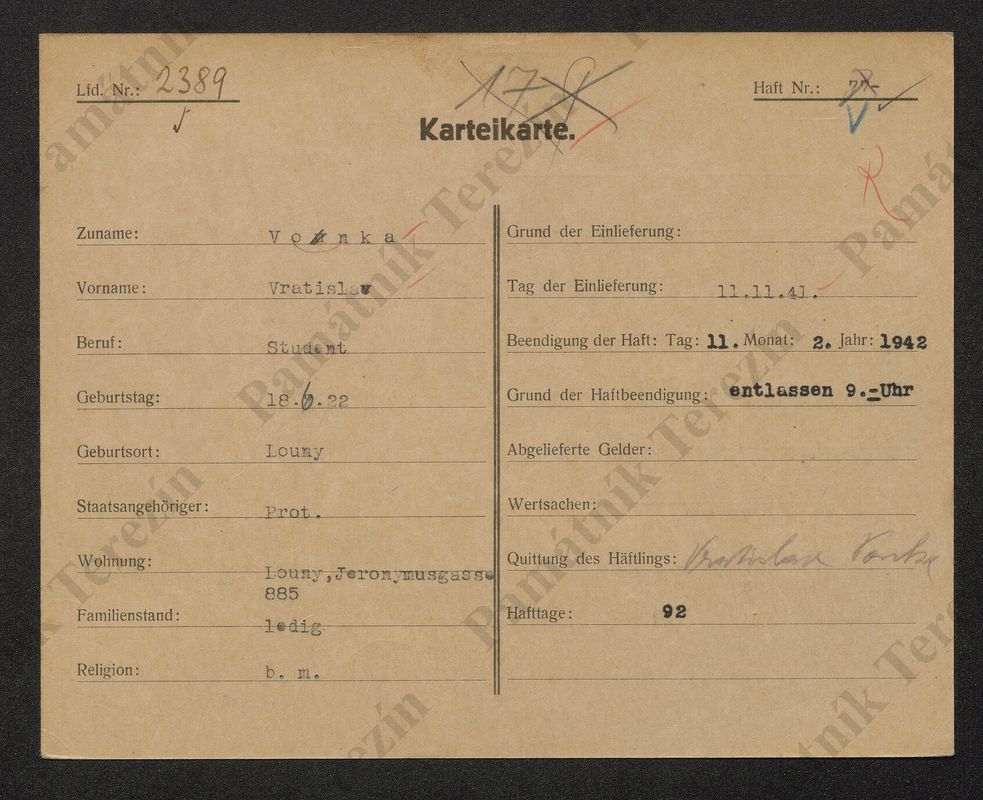 Lfd. Nr.: 2389
17
Haft Nr.:
Karteikarte.
R
Zuname: Vonka
Vorname: Vratislav
Beruf: Student
Geburtstag: 18.6.22
Geburtsort: Louny
Staatsangehöriger: Prot.
Wohnung: Louny, Jeronymusgasse
885
Familienstand: ledig
Religion: b. m.
Grund der Einlieferung:
Tag der Einlieferung: 11.11.41.
Beendigung der Haft: Tag: 11. Monat: 2. Jahr: 1942
Grund der Haftbeendigung: entlassen 9.-Uhr
Abgelieferte Gelder:
Wertsachen:
Quittung des Häftlings: Vratislav Vonka
Hafttage: 92
Památník Terezín